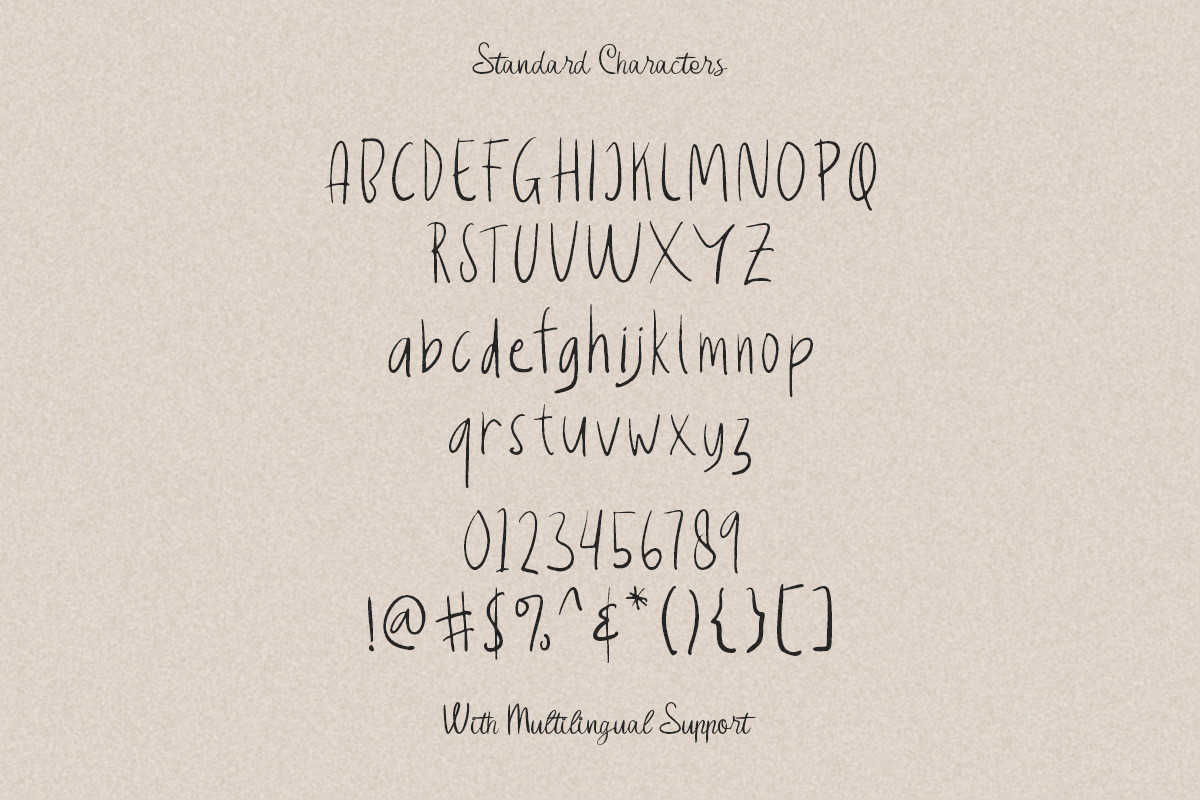 Standard Characters
ABCDEFGHIJKLMNOPQ
RSTUVWXYZ
abcdefghijklmnop
qrstuvwxyz
0123456789
!@#$%^&*(){}[]
With Multilingual Support